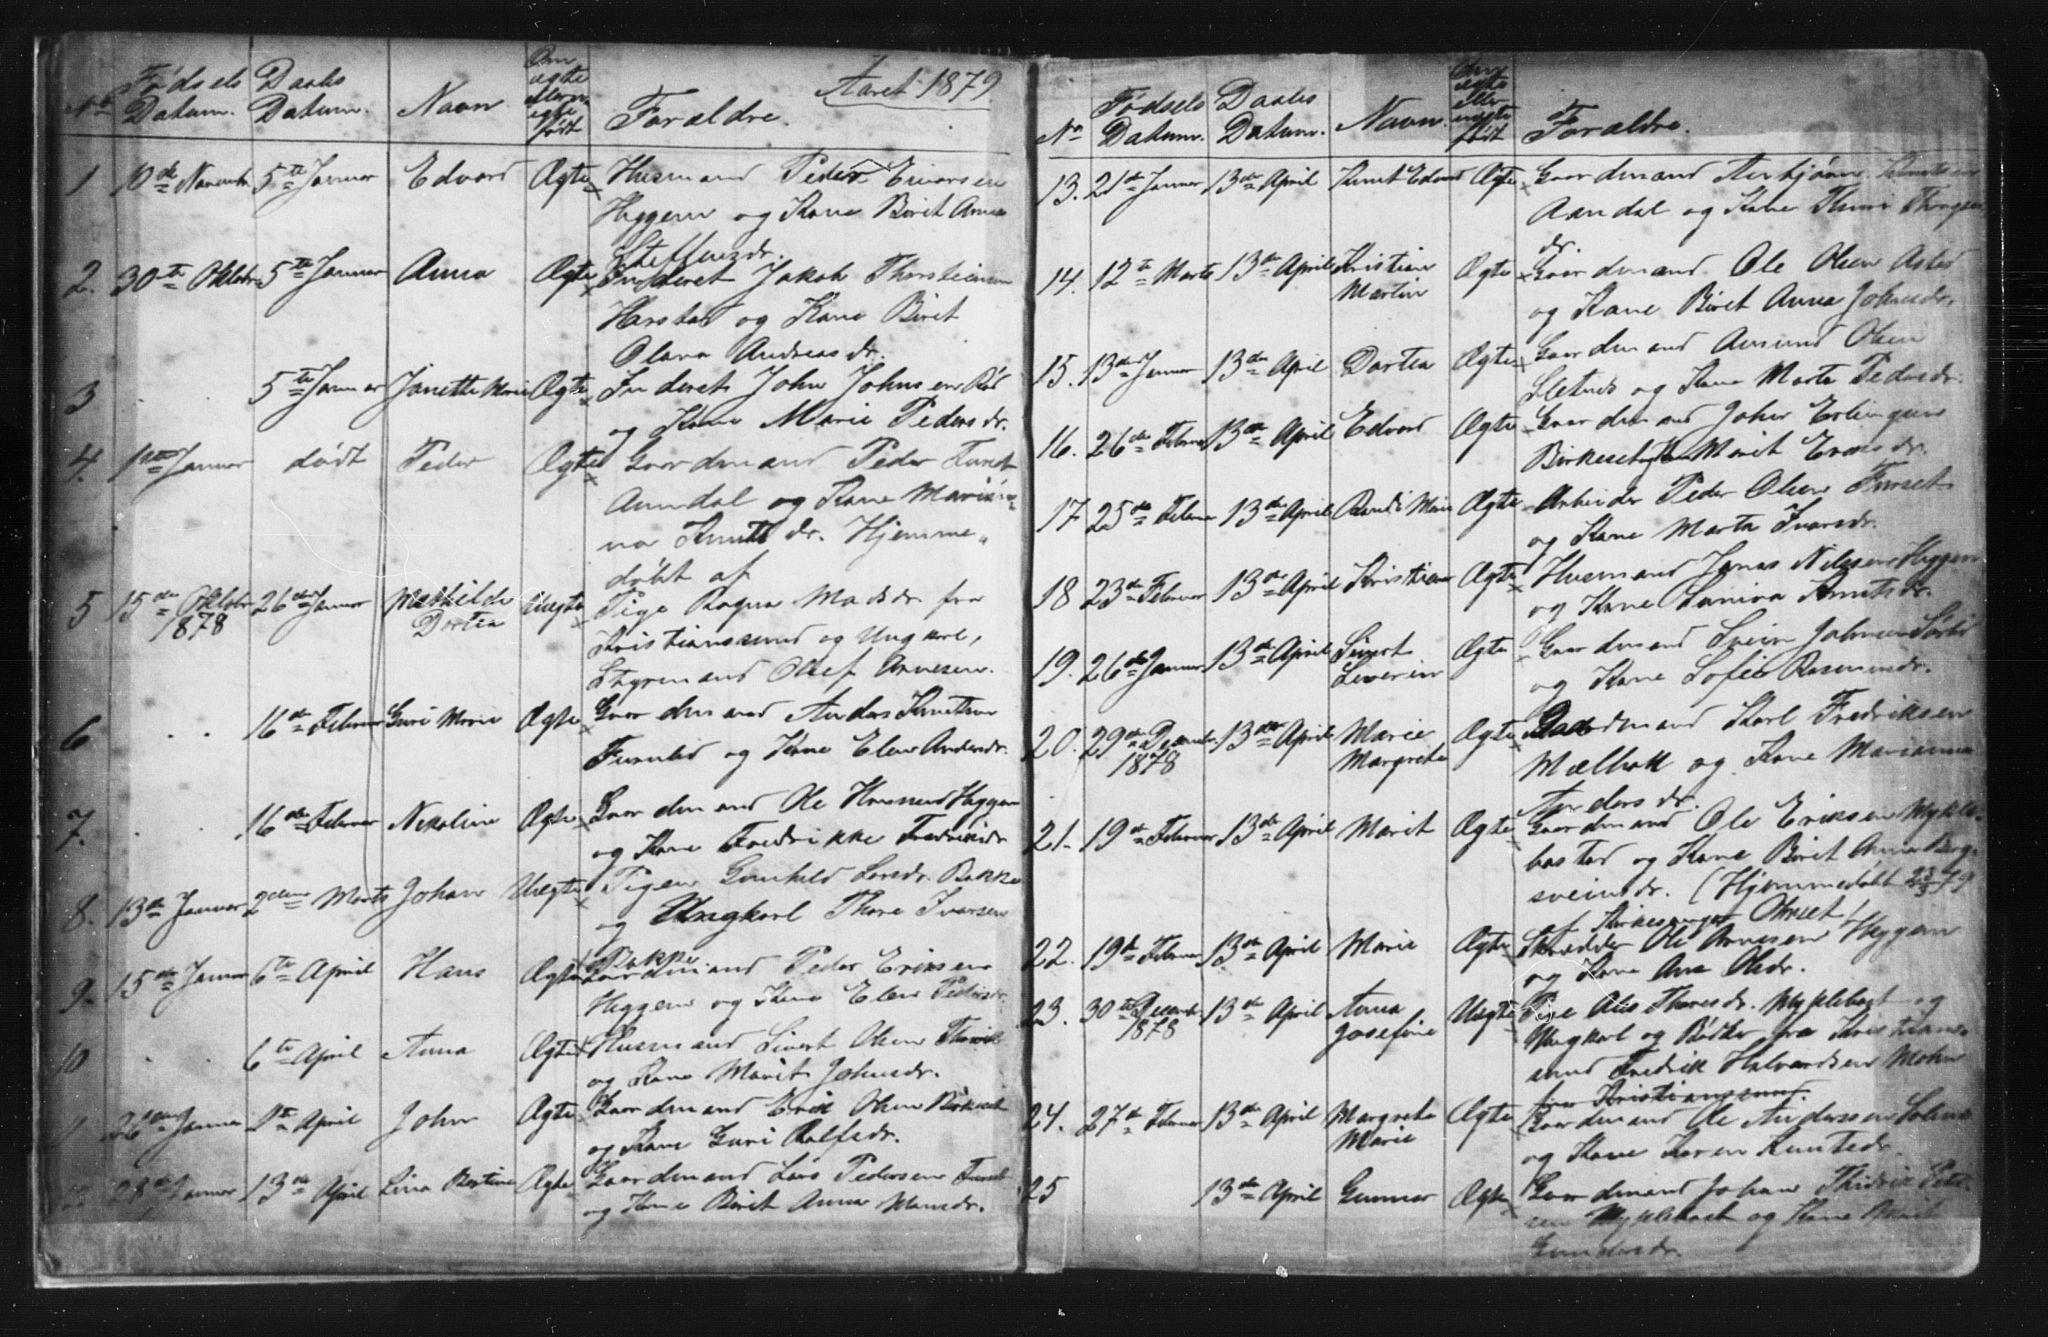 Aaret 1879
No Fødsels Datum. Daabs Datum. Navn Om ægte eller uægte født Forældre.
1 10de Novembr 5te Januar Edvard Ægte Husmand Peder Eversen
Hyggen og Kone Birit Anna
Steffensdr.
2. 30te Oktobr 5te Januar Anna Ægte Inderst Jakob Thorsteinsen
Harstad og Kone Birit
Olava Andreasdr.
3 5te Januar Janette Marie Ægte Inderst John Johnsen Rød
og Kone Marie Pedersdr.
4. 1ste Januar dødt Peder Ægte Gaardmand Peder
Aandal og Kone Marian-
na Knutsdr. Hjemme-
døbt af
5 15de Oktobr 1878 26de Januar Mathilde Dortea Uægte Pige Ragna Madsdr. fra
Kristianssund og Ungkarl,
Styrmand Olef Arnesen.
6 16de Februar Guri Marie Ægte Gaardmand Anders Knutsen
og Kone Elen Andersdr.
7. 16de Februar Nikoline Ægte Gaardmand Ole Hansen Hyggen
og Kone Fredrikke Fredriksdr
8. 13de Januar 2den Marts Johan Uægte Pigen Gunhild Larsdr. Bakke
og Ungkarl Thore Ivarsen
Bakke
9. 15de Januar 6te April Hans Ægte Gaardmand Peder Eriksen
Hyggen og Kone Elen Pedersdr.
10 6te April Anna Ægte Husmand Sivert Olsen
og Kone Marit Johnsdr.
11 26de Januar April John Ægte Gaardmand Erik Olsen Birkeset
og Kone Guri Rolfsdr.
12 28de Januar 13de April Lina Bertine Ægte Gaardmand Lars Pedersen Furset
og Kone Birit Anna Hansdr.
No Fødsels Datum. Daabs Datum. Navn. Om ægte eller uægte født Forældre.
13. 21de Januar 13de April Knut Edvard Ægte Gaardmand Asbjørn Knutsen
Aandal og Kone Thuri
dr.
14. 12te Marts 13de April Kristian Martin Ægte Gaardmand Ole Olsen
og Kone Birit Anna Johnsdr.
15. 13de Januar 13de April Dortea Ægte Gaardmand Amund Olsen
Sletnes og Kone Marta Pedersdr.
16. 26de Februar 13de April Edvard Ægte Gaardmand John Erlingsen
Birkeset og Marit Eriksdr.
17 25de Februar 13de April Randi Marie Ægte Arbeider Peder Olsen Furset
og Kone Marta Ivarsdr.
18 23de Februar 13de April Kristian Ægte Husmand Jonas Nilssen Hyggen
og Kone Lovina Knutsdr.
19. 26de Januar 13de April Sivert Severin Ægte Gaardmand Svein Johnsen
og Kone Sofie Rasmusdr.
20. 29de Decembr. 1878 13de April Marie Margrete Ægte Gaardmand Karl Fredriksen
Mælbak og Kone Marianna
Andersdr.
21. 19de Februar 13de April Marit Ægte Gaardmand Ole Eriksen Mykle-
bostad og Kone Birit Anna Berg-
sveinsdr. (Hjemmedøbt 23/3 79
af Kirkesanger Ohrset)
22. 19de Februar 13de April Marie Ægte Skredder Ole Arnesen Hyggen
og Kone Ane Olsdr.
23. 30te Decembr. 1878 13de April Anna Josefine Uægte Pige Alis Thoresdr. Myklebost og
Ungkarl og Bødker fra Kristian-
sund Fredrik Halvardsen Mohn
fra Kristianssund.
24. 27de Februar 13de April Margrete Marie Ægte Gaardmand Ole Anderssen
og Kone Karen Knutsdr.
25 13de April Gunnar Ægte Gaardmand Johan Thidrik Peter-
sen Myklebost og Kone Birit
Gundersdr.